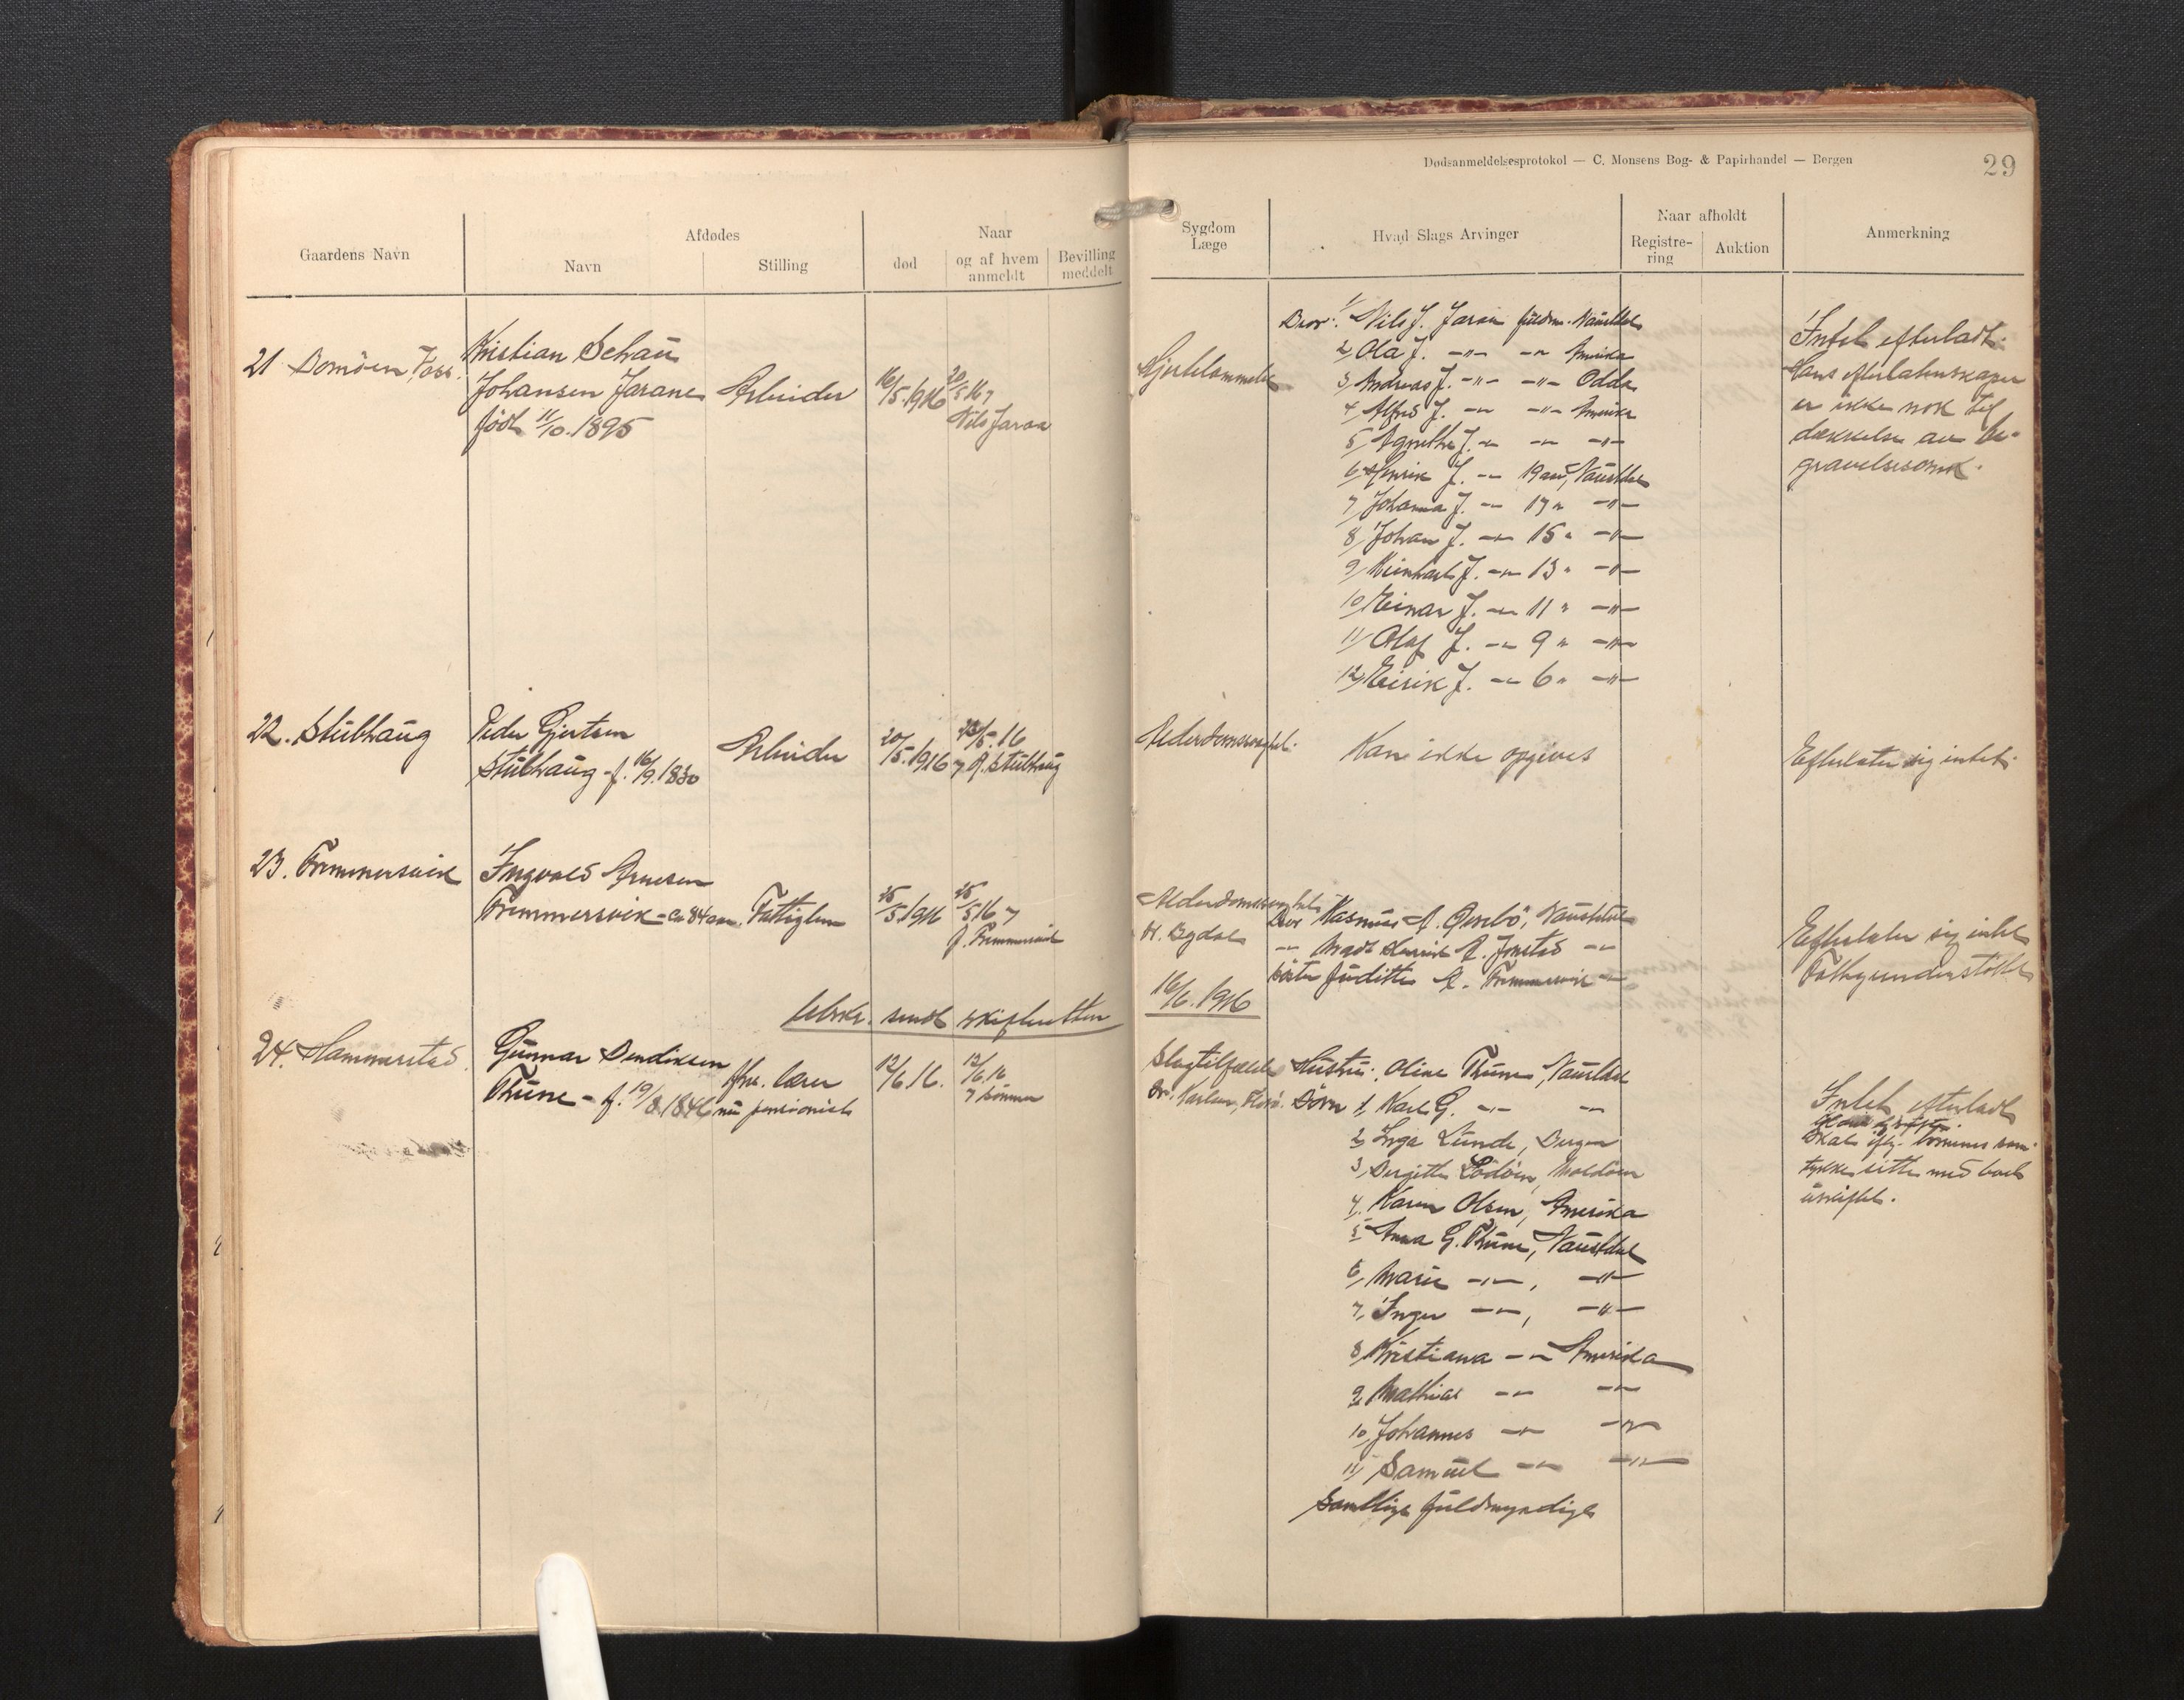 Dødsanmeldelsesprotokol — C. Monsens Bog- & Papirhandel — Bergen
29
Gaardens Navn
Afdødes
Navn
Stilling
Naar
død
og af hvem anmeldt
Bevilling meddelt
Sygdom
Læge
Hvad Slags Arvinger
Naar afholdt
Registrering
Auktion
Anmerkning
21 Domöen, Foss.
Kristian Schau
Johansen Jarane
född 11/10.1895
Arbeider
16/5.1916
20/5 16 7
Nils Jaran
Hjertelammelse
Bror: 1/ Nils J. Jaran fuldm. Naustdal
2, Ola J. -"- -"- Amerika
3, Andreas J. -"- -"- Odda
4, Alfred J. -"- -"- Amerika
5, Agnethe J. -"- -"- -"-
6, Henrik J. -"- 19 aar, Naustdal
7, Johanna J. -"- 17 " -"-
8, Johan J. -"- 15 " -"-
9, Meinhard J. -"- 13 " -"-
10, Einar J. -"- 11 " -"-
11, Olaf J. -"- 9 " -"-
12, Eirik J. -"- 6 " -"-
Intet efterladt.
Hans efterladenskaper
er ikke nok til
dækkelse av be-
gravelsesomk.
22. Stubhaug
Peder Gjertsen
Stubhaug - f. 16/9.1830
Arbeider
20/5.1916
23/5.16
7 A. Stubhaug
Alderdomssvaghet.
Kan ikke opgives
Efterlater sig intet.
23. Fremmersvik
Ingvald Arnesen
Fremmersvik - ca 84 aar.
Fattiglem
25/5.1916
25/5 16 7
J. Fremmersvik
Alderdomssvaghet
H. Bygdal
Bror Rasmus A. Naustdal
-"- Mads Henrik A. Jonstad -"-
Söster Juditte A. Fremmersvik -"-
Efterlater sig intet
Fattigunderstöttet
Utskr. sendt skifteretten
16/6.1916
24. Hammerstad.
Gunnar Bendiksen
Thune - f. 19/8.1846
fhv. lærer
nu pensionist
12/6.16.
13/6.16
7 sönnen
Slagtilfælde
Dr. Karlsen, Florö.
Hustru: Oline Thune, Naustdal
Börn 1, Karl G. -"- -"-
2, Inga Lunde, Bergen
3, Bergitte Lödöen, Maldöen
4, Karen Olsen, Amerika
5, Anna G. Thune, Naustdal
6, Marie -"-, -"-
7, Inger -"-, -"-
8, Kristiana -"- Amerika
9, Mathias -"- -"-
10, Johannes -"- -"-
11, Samuel -"- -"-
Samtlige fuldmyndige
Intet efterladt
Skal iflg. börnenes sam-
tykke sitte med boet
uskiftet.